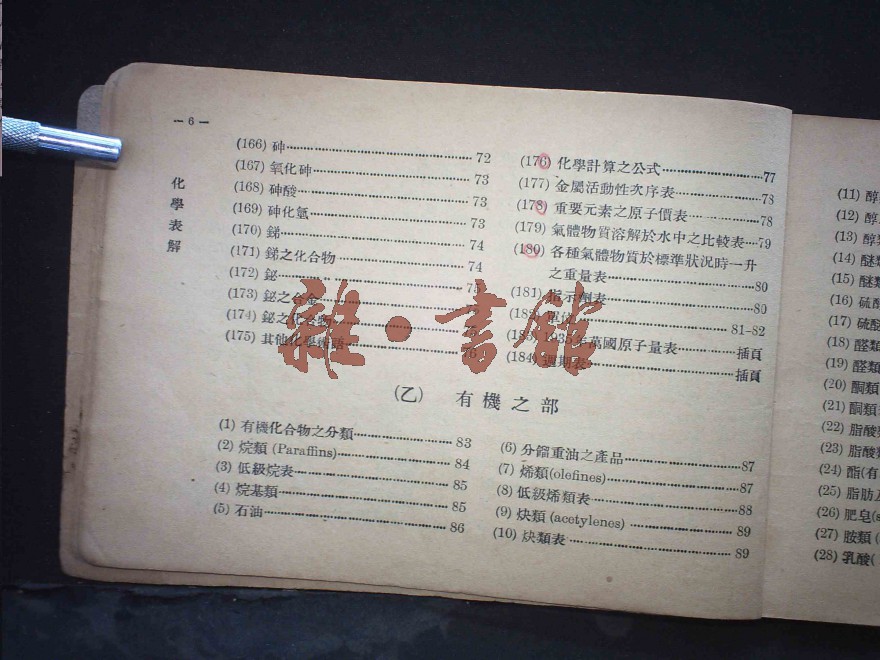 —6—
化學表解
(166) 砷 72
(167) 氧化砷 73
(168) 砷酸 73
(169) 砷化氫 73
(170) 銻 74
(171) 銻之化合物 74
(172) 鉍 75
(173) 鉍之合金
(174) 鉍之化合物 75
(175) 其他化學術語 76
(176) 化學計算之公式 77
(177) 金屬活動性次序表 78
(178) 重要元素之原子價表 78
(179) 氣體物質溶解於水中之比較表 79
(180) 各種氣體物質於標準狀況時一升
之重量表 80
(181) 指示劑表 80
(182) 單位 81-82
(183) 1935年萬國原子量表 插頁
(184) 週期表 插頁
(乙) 有機之部
(1) 有機化合物之分類 83
(2) 烷類 (Paraffins) 84
(3) 低級烷表 85
(4) 烷基類 85
(5) 石油 86
(6) 分餾重油之產品 87
(7) 烯類(olefines) 87
(8) 低級烯類表 88
(9) 炔類 (acetylenes) 89
(10) 炔類表 89
(11) 醇
(12) 醇
(13) 醇
(14) 醚類
(15) 醚類
(16) 硫
(17) 硫
(18) 醛類
(19) 醛類
(20) 酮類
(21) 酮類
(22) 脂酸
(23) 脂酸
(24) 酯(有
(25) 脂肪
(26) 肥皂(s
(27) 胺類 (
(28) 乳酸(
雜·書館